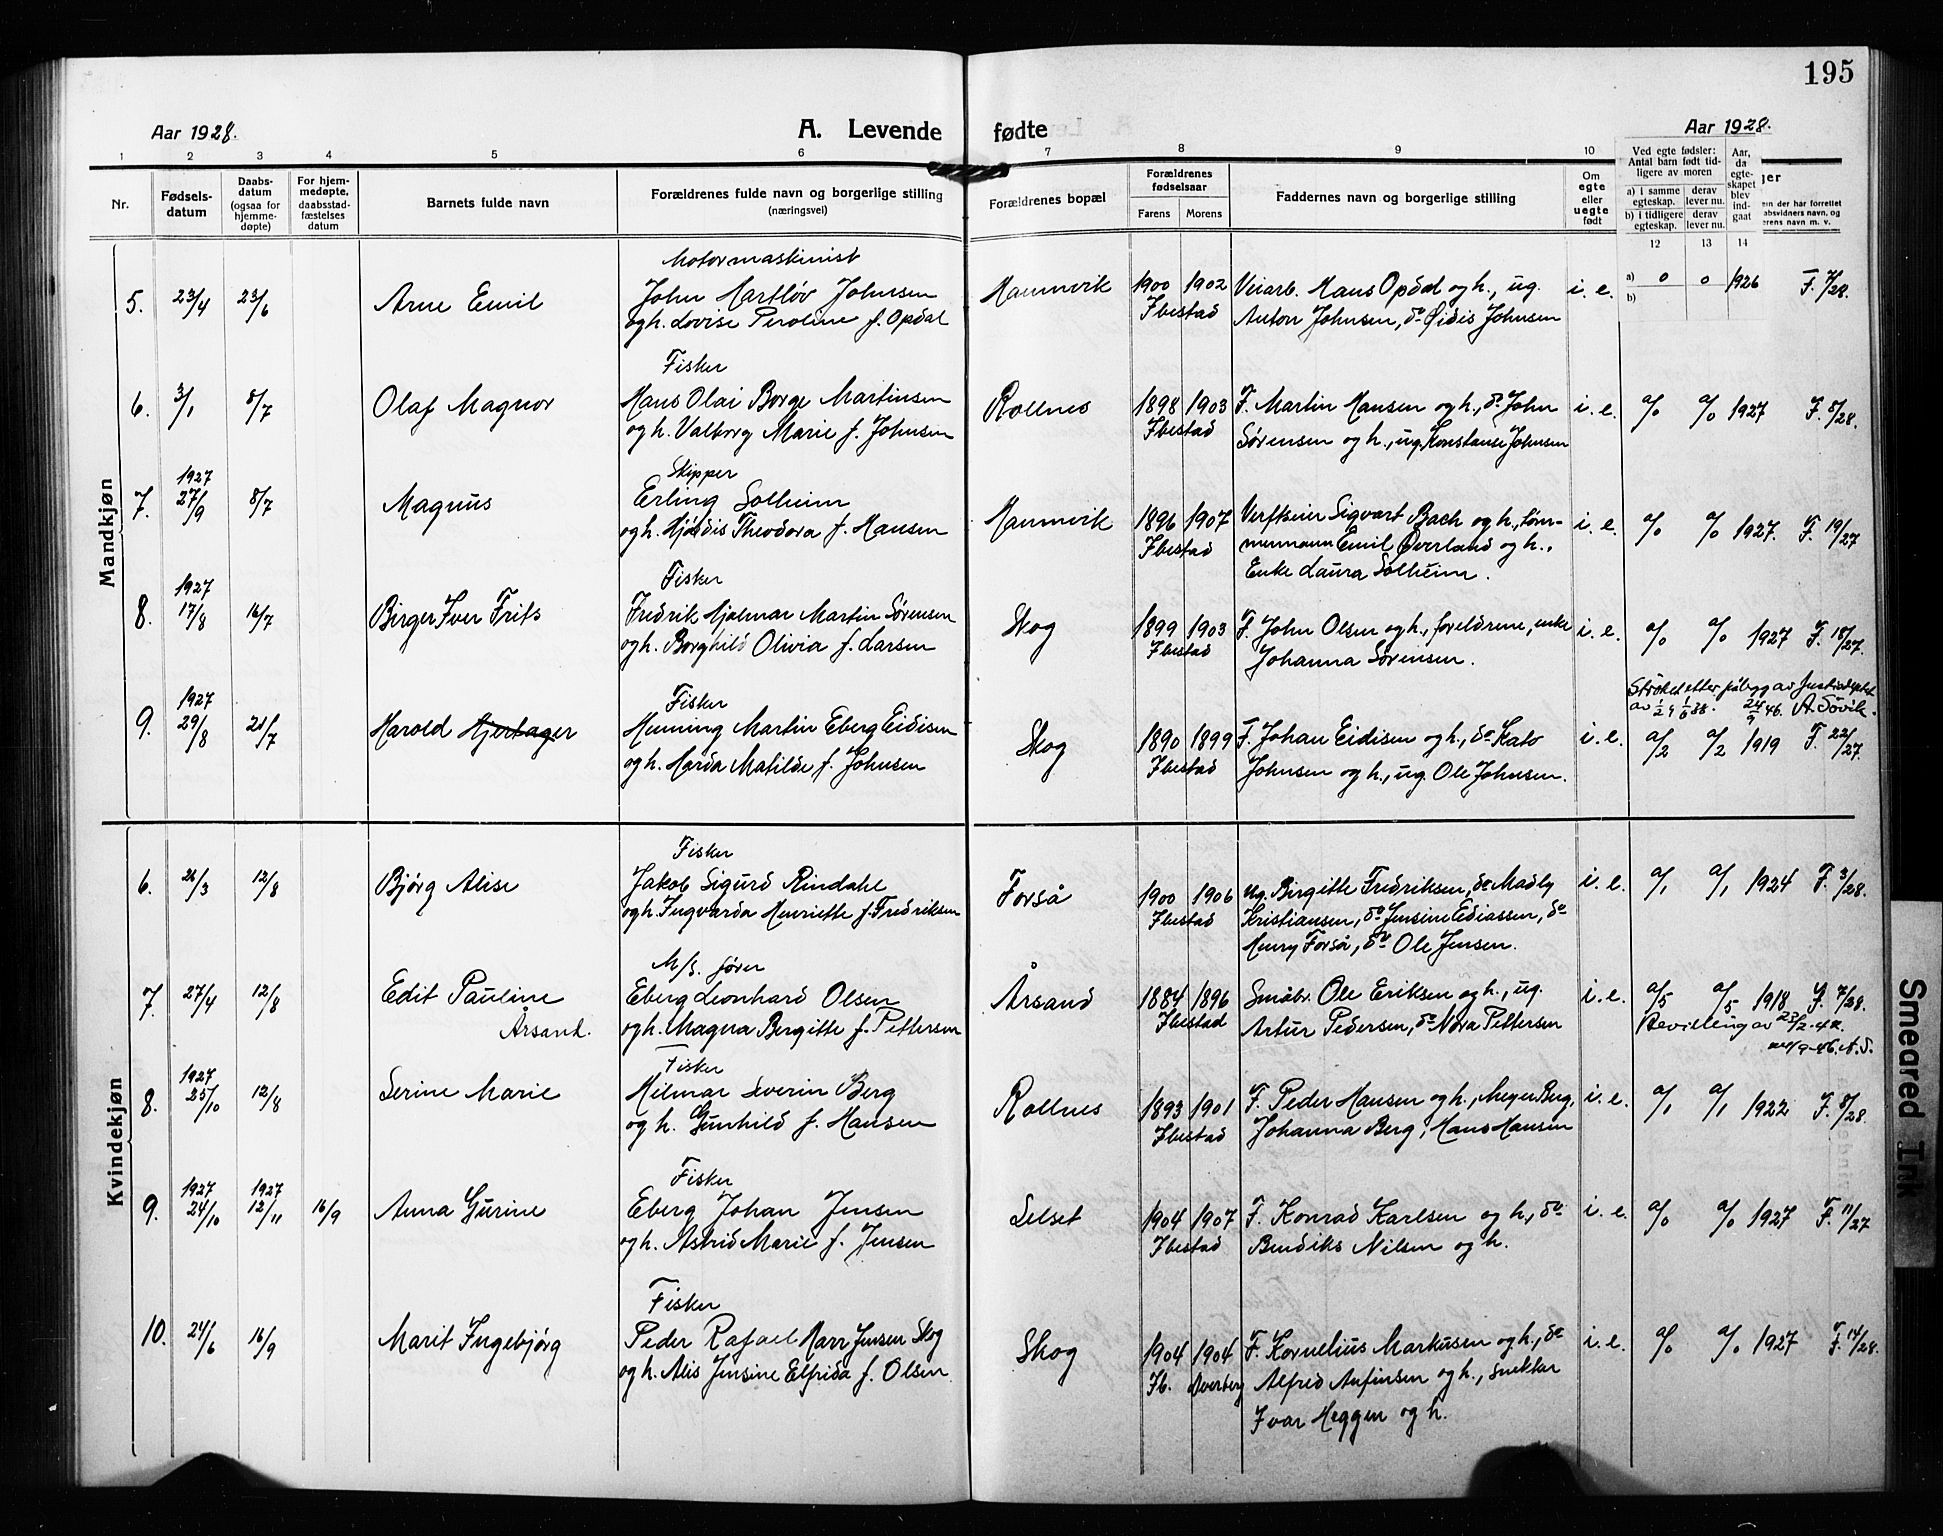 195
Aar 1928.
A. Levende fødte
Aar 1928.
1 2 3 4 5 6 7 8 9 10
Nr.
Fødsels-
datum
Daabs-
datum
(ogsaa for
hjemme-
døpte)
For hjem-
medøpte,
daabsstad-
fæstelses
datum
Barnets fulde navn
Forældrenes fulde navn og borgerlige stilling
(næringsvei)
Forældrenes bopæl
Forældrenes
fødselsaar
Farens Morens
Faddernes navn og borgerlige stilling
Om
egte
eller
uegte
født
Ved egte fødsler:
Antal barn født tid-
ligere av moren
a) i samme
egteskap.
derav
lever nu.
b) i tidligere
egteskap.
derav
lever nu.
Aar,
da
egte-
skapet
blev
ind-
gaat
12 13 14
Mandkjøn
5. 23/4 23/6 Arne Emil
Motormaskinist
John Hartløv Johnsen
og h. Lovise Peroline f. Opdal
Hamnvik
1900 1902
Ibestad
Veiarb. Hans Opdal og h., ug.
Anton Johnsen, do Øidis Johnsen
i. e.
a) 0 0 1926 F. 7/28.
b)
6. 3/1 8/7 Olaf Magnor
Fisker
Hans Olai Borge Martinsen
og h. Valborg Marie f. Johnsen
Rollnes
1898 1903
Ibestad
F. Martin Hansen og h., do John
Sørensen og h., ug. Konstanse Johnsen
i. e. a/0 a/0 1927 F. 8/28.
7. 1927
27/9 8/7 Magnus
Skipper
Erling Solheim
og h. Hjørdis Theodora f. Hansen
Hamnvik
1896 1907
Ibestad
Verftseier Sigvart Bach og h., tøm-
mermann Emil Øverland og h.,
Enke Laura Solheim.
i. e. a/0 a/0 1927. F. 19/27
8. 1927
17/8 16/7 Birger Iver Frits
Fisker
Fredrik Hjalmar Martin Sørensen
og h. Borghild Olivia f. Larsen
Skog
1899 1903
Ibestad
F. John Olsen og h., foreldrene, enke
Johanna Sørensen.
i. e. a/0 a/0 1927 F. 18/27.
9. 1927
29/8 21/7 Harold Hjertager
Fisker
Henning Martin Eberg Eidisen
og h. Harda Matilde f. Johnsen
Skog
1890 1899
Ibestad
F. Johan Eidisen og h., do Kato
Johnsen og h., ug. Ole Johnsen.
i. e.
Strøket etter av A. Søvik.
a/2 a/2 1919 F. 22/27.
Kvindekjøn
6. 21/3 12/8 Bjørg Alise
Fisker
Jakob Sigurd Rindahl
og h. Ingvarda Henriette f. Fredriksen
Forså
1900 1906
Ibestad
ug. Birgitte Fredriksen, do Madly
Kristiansen, do Jensine Ediassen, do
Henry Forså, do Ole Jensen.
i. e. a/1 a/1 1924 F. 3/28.
7. 27/4 12/8 Edit Pauline
Årsand.
M/s. fører
Eberg Leonhard Olsen
og h. Magna Bergitte f. Pettersen
Årsand
1884 1896
Ibestad
Småbr. Ole Eriksen og h., ug.
Artur Pedersen, do Nora Pettersen
i. e. a/5 a/5 1918 F. 7/28.
Bevilling av
8. 1927
25/10 12/8 Serine Marie
Fisker
Hilmar Severin Berg
og h. Gunhild f. Hansen
Rollnes
1893 1901
Ibestad
F. Peder Hansen og h., Meyer Berg,
Johanna Berg, Hans Hansen
i. e. a/1 a/1 1922 F. 8/28.
9. 1927 1927
24/10 12/11 16/9 Anna Gurine
Fisker
Eberg Johan Jensen
og h. Astrid Marie f. Jensen
Selset
1904 1907
Ibestad
F. Konrad Karlsen og h., do
Bendiks Nilsen og h.
i. e. a/0 a/0 1927 F. 11/27
10. 24/6 16/9 Marit Ingebjørg
Fisker
Peder Rafael Harr Jensen Skog
og h. Alis Jensine Elfrida f. Olsen
Skog
1904 1904
Ib. Averberg
F. Kornelius Markusen og h., do
Alfred Anfinsen og h., snekker
Ivar Heggen og h.
i. e. a/0 a/0 1927 F. 14/28.
Smeared Ink